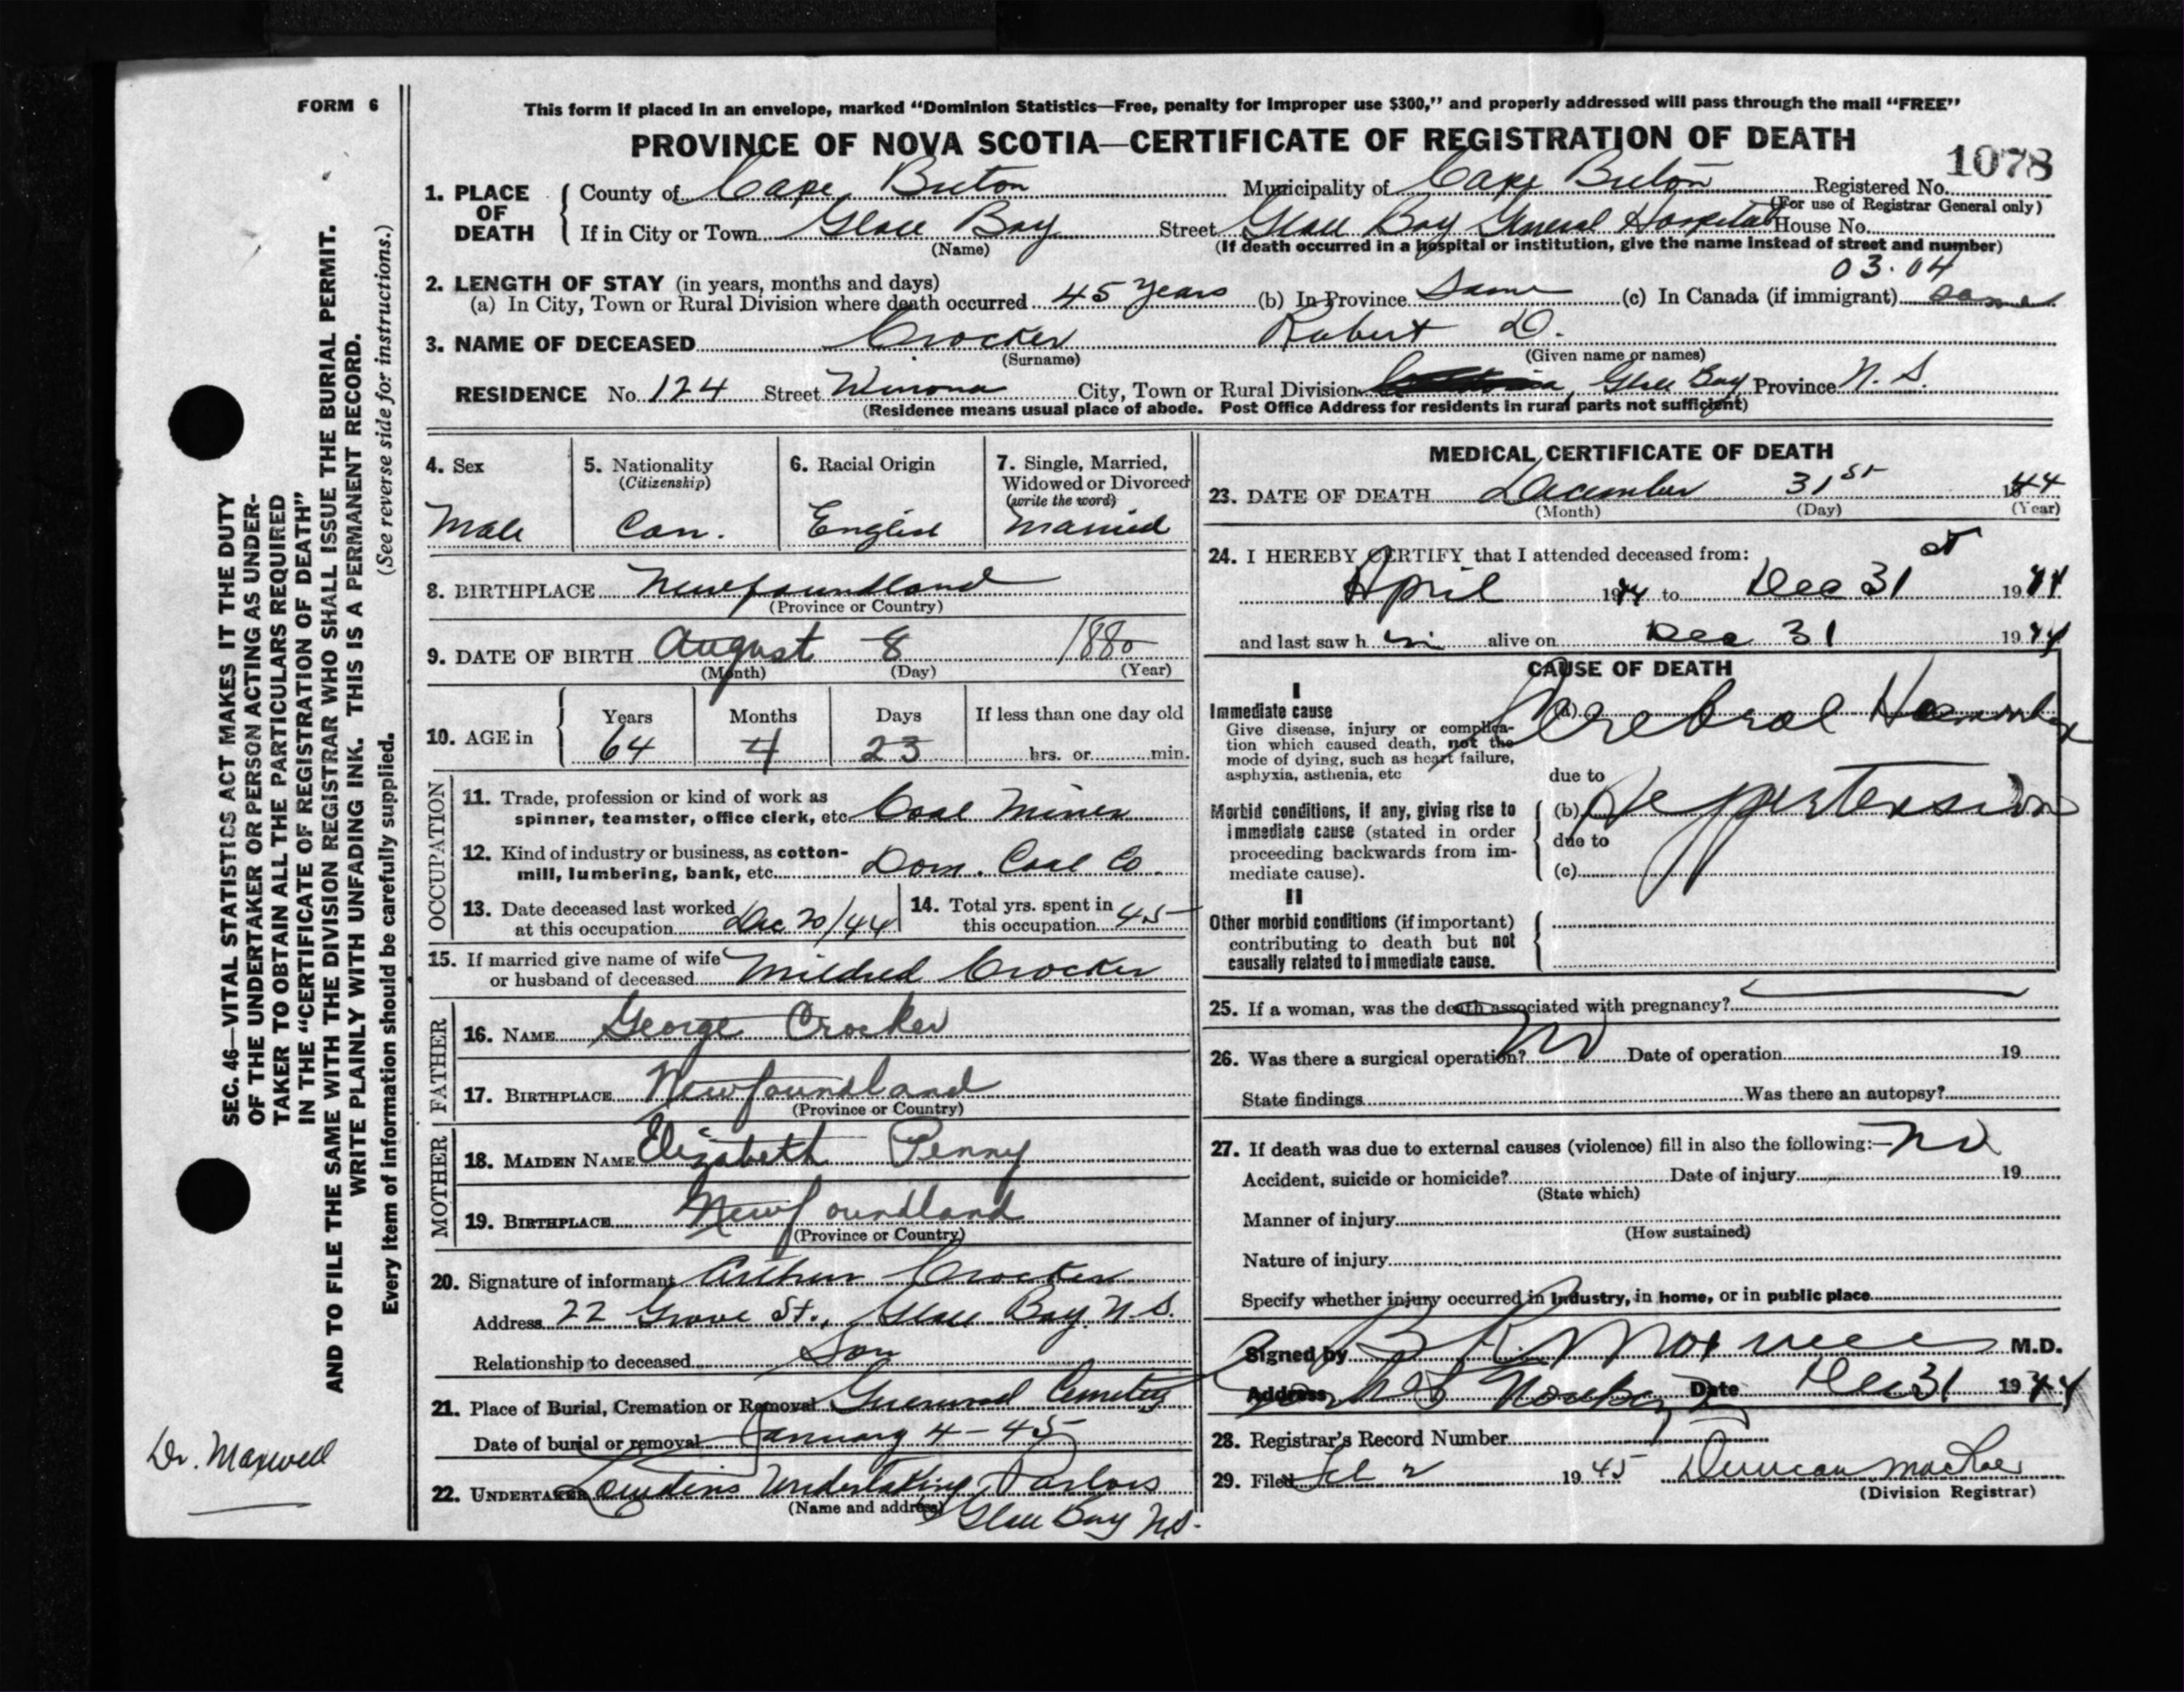 FORM 6
This form if placed in an envelope, marked “Dominion Statistics—Free, penalty for improper use $300,” and properly addressed will pass through the mail “FREE”
PROVINCE OF NOVA SCOTIA—CERTIFICATE OF REGISTRATION OF DEATH
1078
1. PLACE OF DEATH County of Cape Breton Municipality of Cape Breton Registered No.
(For use of Registrar General only)
If in City or Town Glace Bay Street Glace Bay General Hospital House No.
(Name) (If death occurred in a hospital or institution, give the name instead of street and number)
03.04
2. LENGTH OF STAY (in years, months and days)
(a) In City, Town or Rural Division where death occurred 45 years (b) In Province Same (c) In Canada (if immigrant) Same
3. NAME OF DECEASED Crocker Robert D.
(Surname) (Given name or names)
RESIDENCE No. 124 Street Winona City, Town or Rural Division Glace Bay Province N.S.
(Residence means usual place of abode. Post Office Address for residents in rural parts not sufficient)
4. Sex 5. Nationality (Citizenship) 6. Racial Origin 7. Single, Married, Widowed or Divorced (write the word)
Male Can. English Married
8. BIRTHPLACE Newfoundland
(Province or Country)
9. DATE OF BIRTH August 8 1880
(Month) (Day) (Year)
10. AGE in Years Months Days If less than one day old
64 4 23 hrs. or min.
OCCUPATION
11. Trade, profession or kind of work as
spinner, teamster, office clerk, etc. Coal Miner
12. Kind of industry or business, as cotton-
mill, lumbering, bank, etc. Dom. Coal Co.
13. Date deceased last worked
at this occupation Dec 20/44
14. Total yrs. spent in
this occupation 45
15. If married give name of wife
or husband of deceased Mildred Crocker
FATHER
16. NAME George Crocker
17. BIRTHPLACE Newfoundland
(Province or Country)
MOTHER
18. MAIDEN NAME Elizabeth Penny
19. BIRTHPLACE Newfoundland
(Province or Country)
20. Signature of informant Arthur Crocker
Address 22 Grove St., Glace Bay, N.S.
Relationship to deceased Son
21. Place of Burial, Cremation or Removal Greenwood Cemetery
Date of burial or removal January 4-45
22. UNDERTAKER Undertaking Parlors
(Name and address) Glace Bay N.S.
MEDICAL CERTIFICATE OF DEATH
23. DATE OF DEATH December 31st 1944
(Month) (Day) (Year)
24. I HEREBY CERTIFY that I attended deceased from:
April 1944 to Dec 31st 1944
and last saw h im alive on Dec 31 1944
CAUSE OF DEATH
I
Immediate cause
Give disease, injury or complica-
tion which caused death, not the
mode of dying, such as heart failure,
asphyxia, asthenia, etc
(a) Cerebral
due to
Morbid conditions, if any, giving rise to
immediate cause (stated in order
proceeding backwards from im-
mediate cause).
(b) Hypertension
due to
(c)
II
Other morbid conditions (if important)
contributing to death but not
causally related to immediate cause.
25. If a woman, was the death associated with pregnancy?
26. Was there a surgical operation? No Date of operation 19
State findings Was there an autopsy?
27. If death was due to external causes (violence) fill in also the following:— No
Accident, suicide or homicide? Date of injury 19
(State which)
Manner of injury
(How sustained)
Nature of injury
Specify whether injury occurred in industry, in home, or in public place
Signed by Maxwell M.D.
Address Date Dec 31 1944
28. Registrar’s Record Number
29. Filed Feb 2 1945 Duncan MacRae
(Division Registrar)
SEC. 46—VITAL STATISTICS ACT MAKES IT THE DUTY
OF THE UNDERTAKER OR PERSON ACTING AS UNDER-
TAKER TO OBTAIN ALL THE PARTICULARS REQUIRED
IN THE “CERTIFICATE OF REGISTRATION OF DEATH”
AND TO FILE THE SAME WITH THE DIVISION REGISTRAR WHO SHALL ISSUE THE BURIAL PERMIT.
WRITE PLAINLY WITH UNFADING INK. THIS IS A PERMANENT RECORD.
Every item of information should be carefully supplied. (See reverse side for instructions.)
Dr. Maxwell